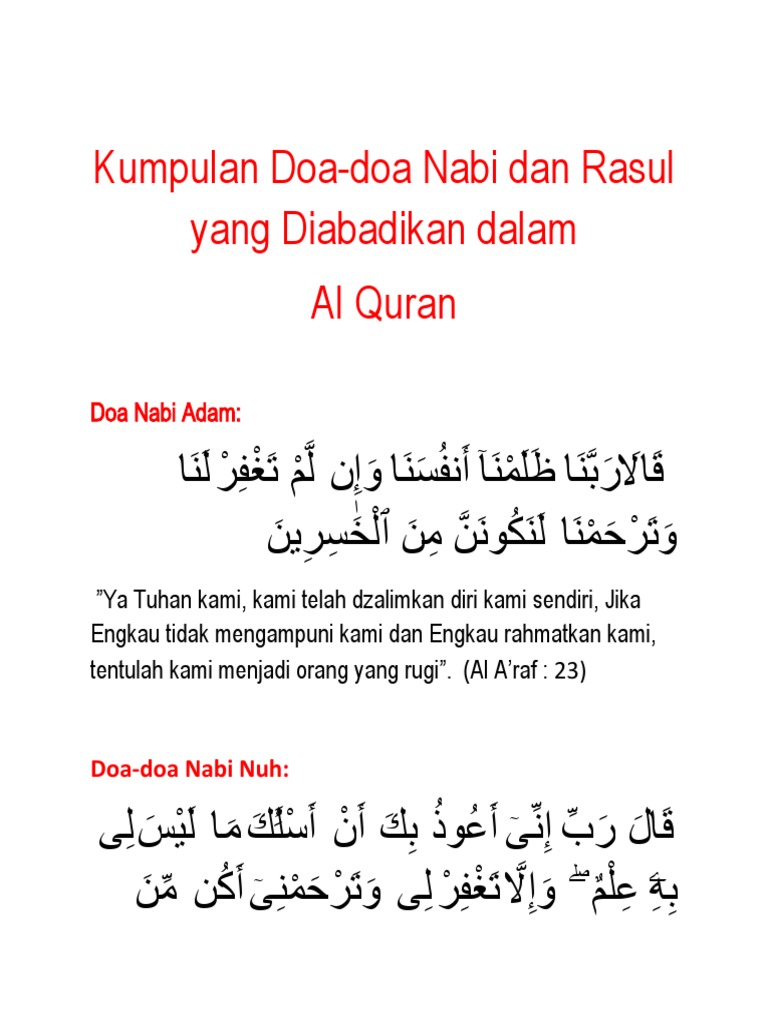 Kumpulan Doa-doa Nabi dan Rasul
yang Diabadikan dalam
Al Quran
Doa Nabi Adam:
قَالَا رَبَّنَا ظَلَمْنَآ أَنفُسَنَا وَإِن لَّمْ تَغْفِرْ لَنَا
وَتَرْحَمْنَا لَنَكُونَنَّ مِنَ ٱلْخَٰسِرِينَ
”Ya Tuhan kami, kami telah dzalimkan diri kami sendiri, Jika
Engkau tidak mengampuni kami dan Engkau rahmatkan kami,
tentulah kami menjadi orang yang rugi”. (Al A’raf : 23)
Doa-doa Nabi Nuh:
قَالَ رَبِّ إِنِّىٓ أَعُوذُ بِكَ أَنْ أَسْـَٔلَكَ مَا لَيْسَ لِى
بِهِۦ عِلْمٌ ۖ وَإِلَّا تَغْفِرْ لِى وَتَرْحَمْنِىٓ أَكُن مِّنَ